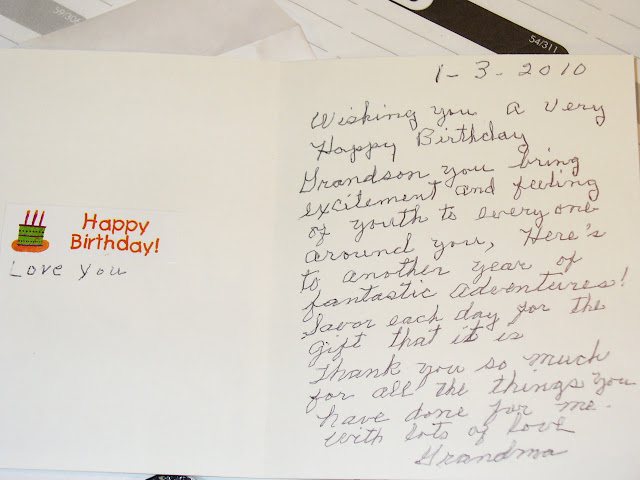 59/30
54/311
Happy
Birthday!
Love you
1-3-2010
Wishing you a very
Happy Birthday
Grandson you bring
excitement and feeling
of youth to everyone
around you, Here's
to another year of
fantastic adventures!
Savor each day for the
gift that it is
Thank you so much
for all the things you
have done for me.
With lots of love
Grandma